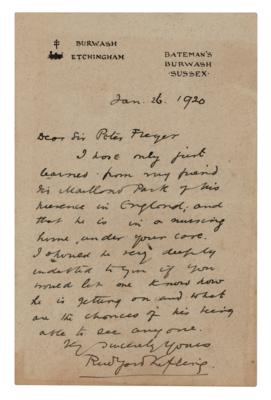 BURWASH
ETCHINGHAM
BATEMAN'S
BURWASH
SUSSEX
Jan. 26. 1920
Dear Sir Peter Freyer
I have only just
learned from my friend
Sir Maitland Park of his
presence in England, and
that he is in a nursing
home under your care.
I should be very deeply
indebted to you if you
would let me know how
he is getting on and what
are the chances of his being
able to see anyone.
Very sincerely Yours
Rudyard Kipling.